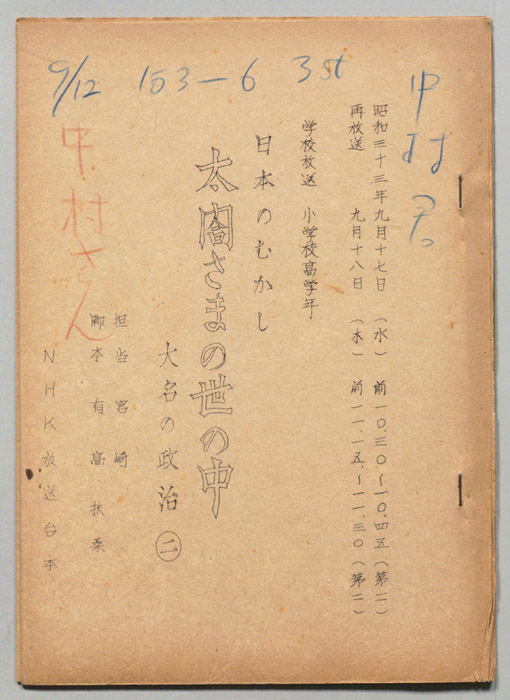 9/12 153-6 3st
中村君
昭和三十三年九月十七日（水）前一〇.三〇〜一〇.四五（第二）
再放送 九月十八日（木）前一一.一五.〜一一.三〇（第二）
学校放送 小学校高学年
日本のむかし
太閤さまの世の中
大名の政治㊁
担当宮崎
脚本有高扶桑
NHK放送台本
中村さん